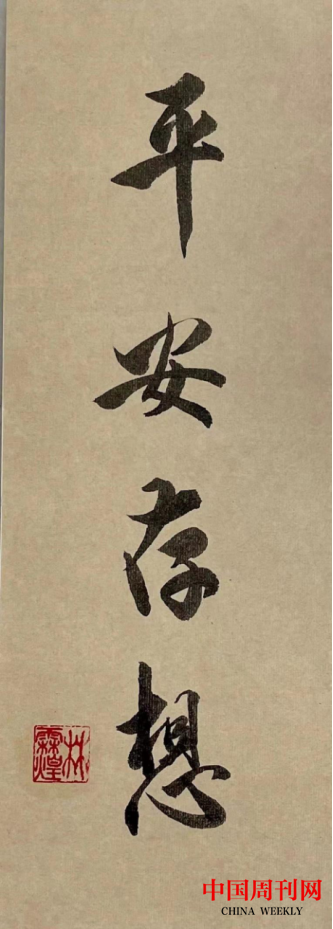 平安存想
中国周刊网
CHINA WEEKLY